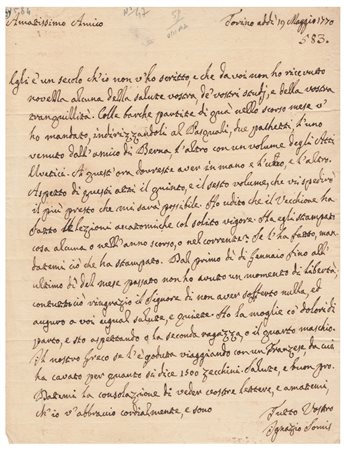 Amatissimo Amico
Torino addì 19 Maggio 1770
583.
Egli è un secolo ch'io non v'ho scritto, e che da voi non ho ricevuto
novella alcuna della salute vostra de' vostri studj, e della vostra
tranquillità. Colle barche partite di quà nello scorso mese v'
ho mandato, indirizzandoli al Pasquali, due pachetti, l'uno
venuto dall'amico di Berna, l'altro con un volume degli Atti
Elvetici. A quest'ora dovreste aver in mano e l'uno, e l'altro.
Aspetto di questi atti il quinto, e il sesto volume, che vi spedirò
il più presto che mi sarà possibile. Ho udito che il Vecchione ha
fatto le lezioni anatomiche col solito vigore. Ha egli stampato
cosa alcuna o nell'anno scorso, o nel corrente? Se l'ha fatto, man-
datemi ciò che ha stampato. Dal primo dì di Gennaio fino all'
ultimo dì del mese passato non ho avuto un momento di libertà;
contuttociò ringrazio il Signore di non aver sofferto nulla, ed
auguro a voi egual salute, e quiete. Ho la moglie co' dolori di
parto, e sto aspettando o la seconda ragazza, o il quarto maschio.
Il nostro Greco se l'è goduta viaggiando con un Franzese da cui
ha cavato per quanto si dice 1500 zecchini. Salute, e buon pro.
Datemi la consolazione di veder vostre lettere, e amatemi,
ch'io v'abbraccio cordialmente, e sono
Tutto Vostro
Ignazio Somis